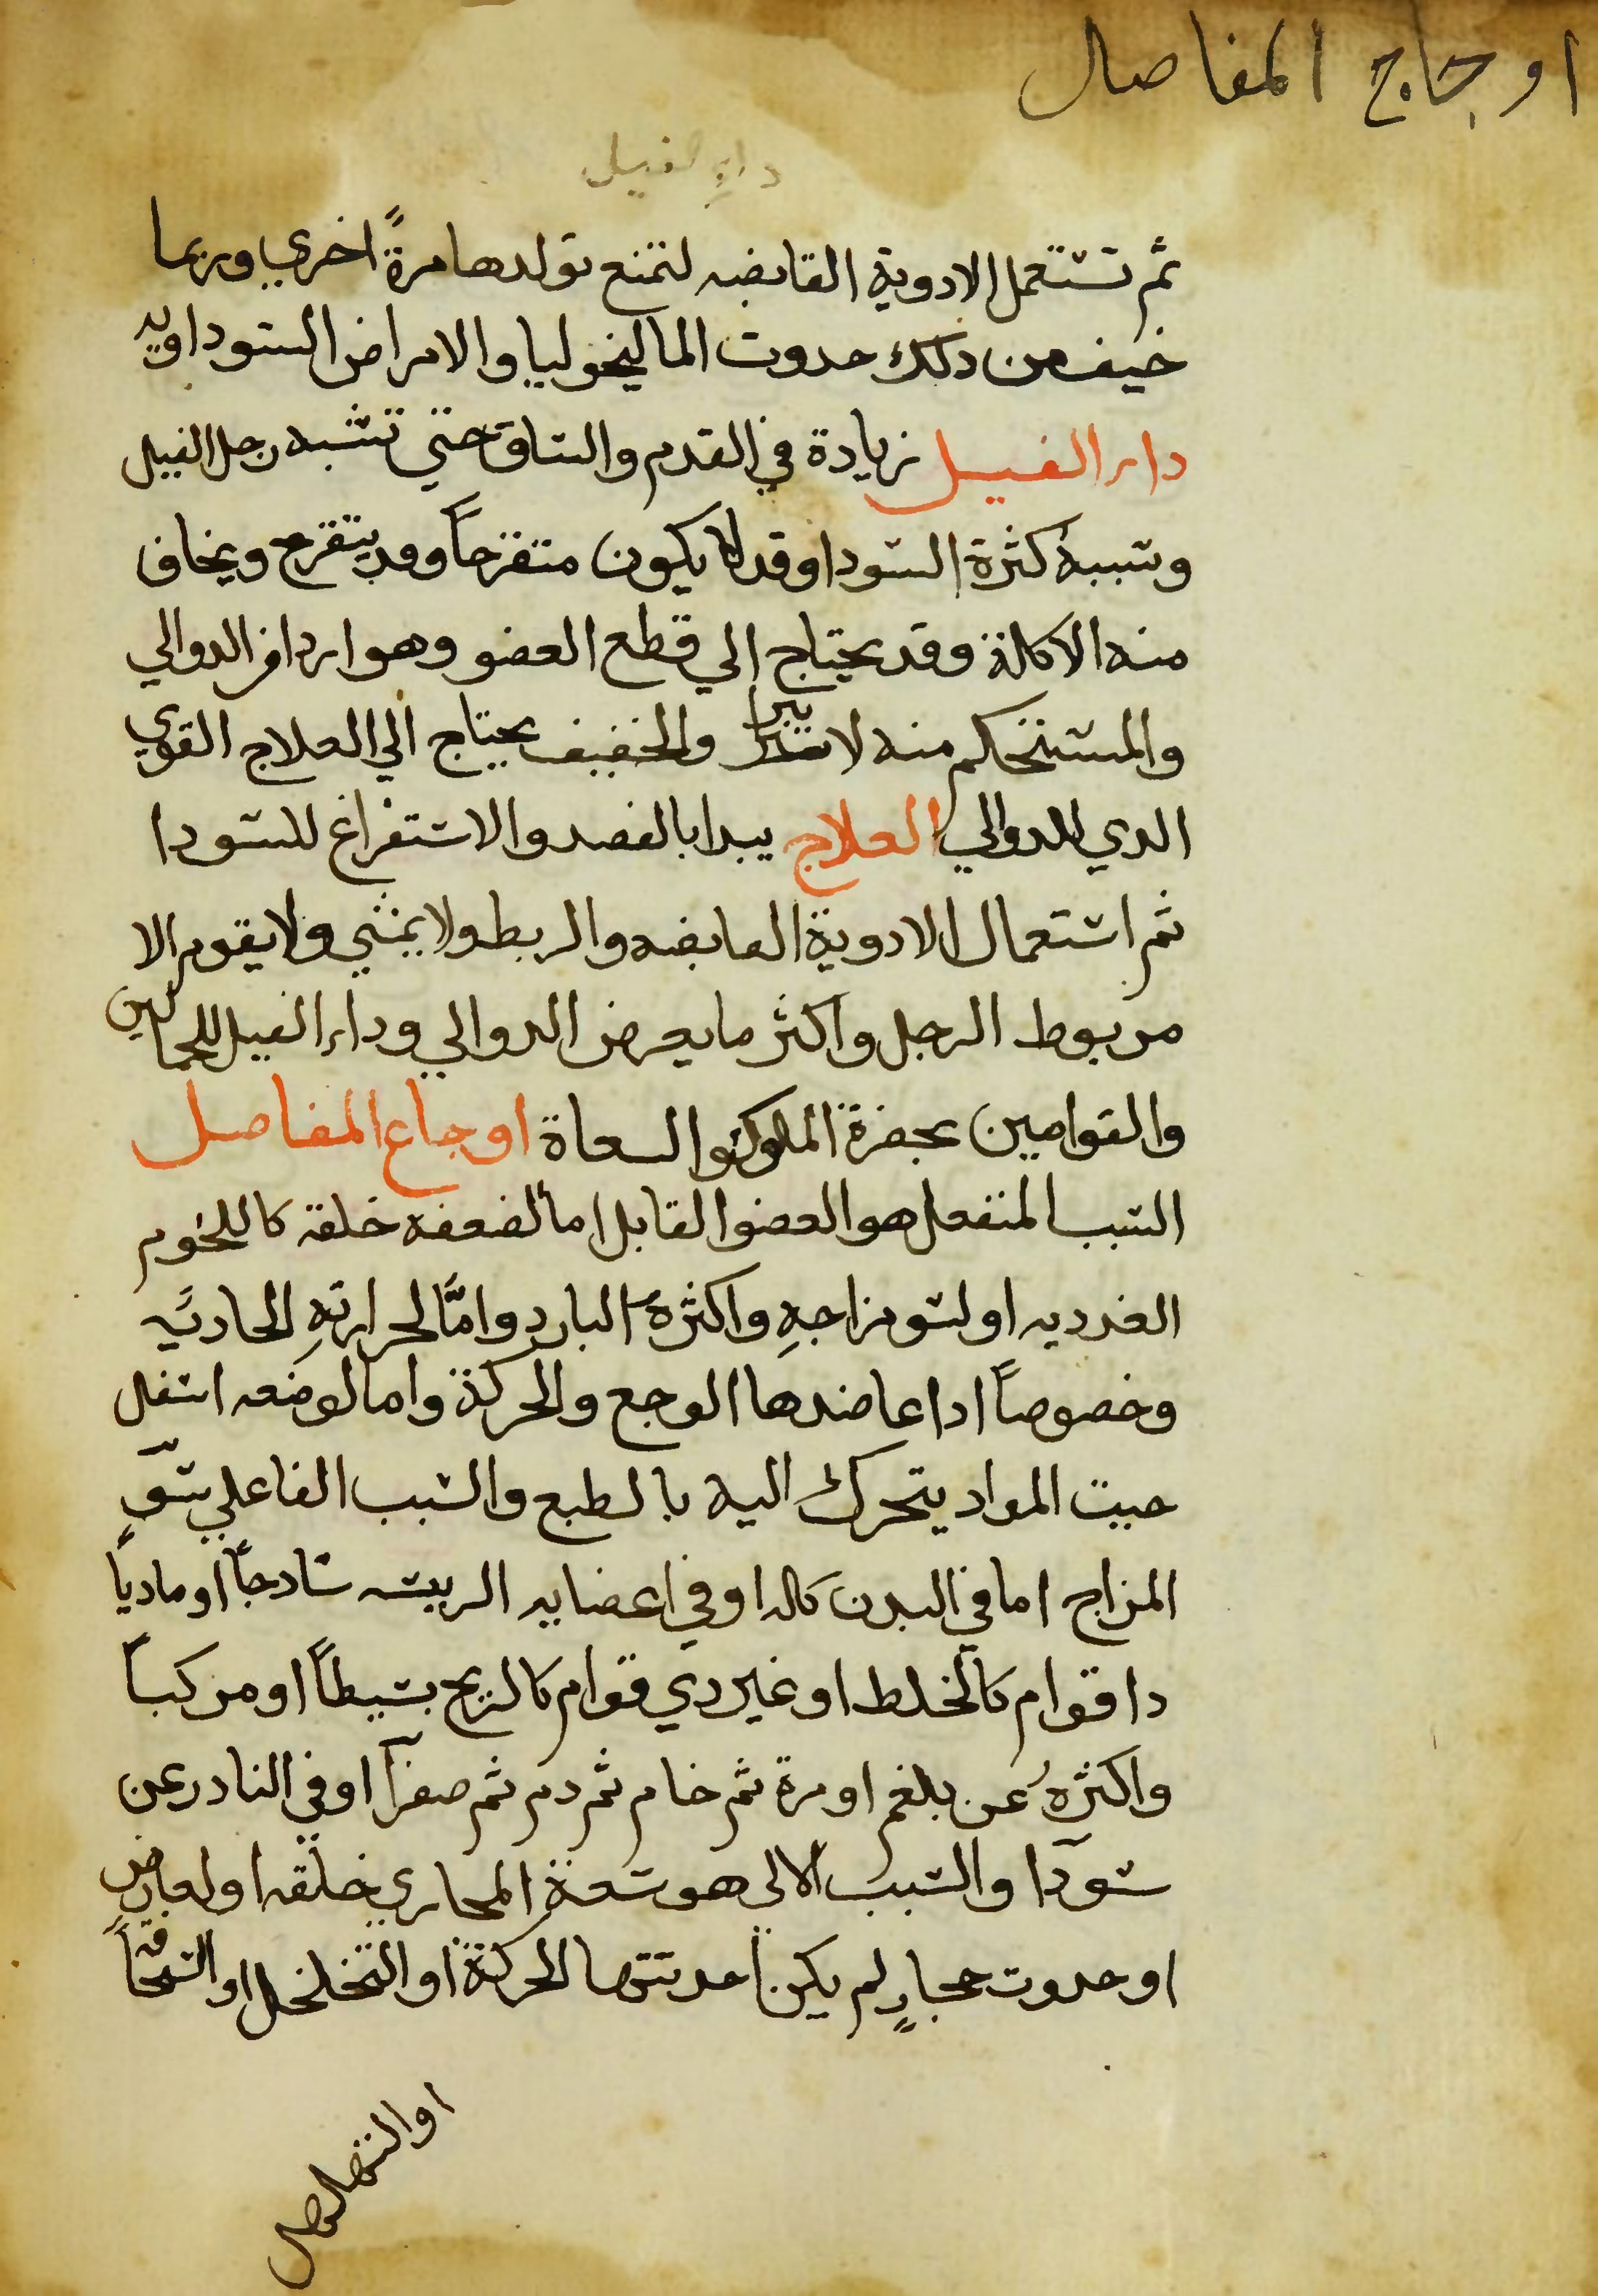 اوجاع المفاصل
داء الفيل
ثم تستعمل الادوية القابضه لتمنع تولدها مرةً اخري وربما
خيف من ذلك حدوت الماليخوليا والامراض السوداويه
داء الفيل زيادة في القدم والساق حتي تشبه رجل الفيل
وسببه كثرة السودا وقد لا يكون متقرحاً وقد يتقرح ويخاف
منه الاكلة وقد يحتاج الي قطع العضو وهو اردا من الدوالي
والمستحكم منه لا يبرا والخفيف يحتاج الي العلاج القوي
الدي للدوالي العلاج يبدا بالفصد والاستفراغ للسودا
ثم استعمال الادوية القابضه والربط ولا يمشي ولا يقوم الا
مربوط الرجل واكثر ما يعرض الدوالي وداء الفيل للحمالين
والقوامين بحضرة الملوك والسعاة اوجاع المفاصل
السبب المنفعل هو العضو القابل اما لضعفه خلقة كاللحوم
الغدديه او لسو مزاجهِ واكثرهُ البارد وامَّا لحرارتهِ الجادبَيه
وخصوصاً ادا عاضدها الوجع والحركة واما لوضعه اسفل
حيت المواد يتحرك اليه بالطبع والسبب الفاعلي سوّ
المزاج اما في البدن كله او في اعضايه الريسه سادجاً او مادياً
دا قوام كالخلط او غير دي قوام كالريح بسيطاً او مركباً
واكثرهُ عن بلغم او مرة ثم خام ثم دم ثم صفرآ او في النادر عن
سودآ والسبب الالى هو سعة المجاري خلقه او لعارضٍ
او حدوت مجارٍ لم يكن احدتتها الحركة او التخلخل او السخافة
او التهلهل